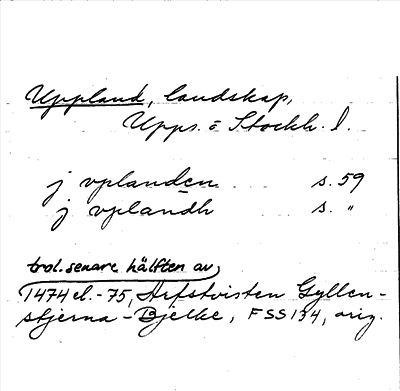 Uppland, landskap,
Upps. o Stockh. l.
j vplanden s. 59
j vplandh s. "
trol. senare hälften av
1474 el. -75, Arfstvisten Gyllen-
stjerna - Bjelke, FSS 134, orig.